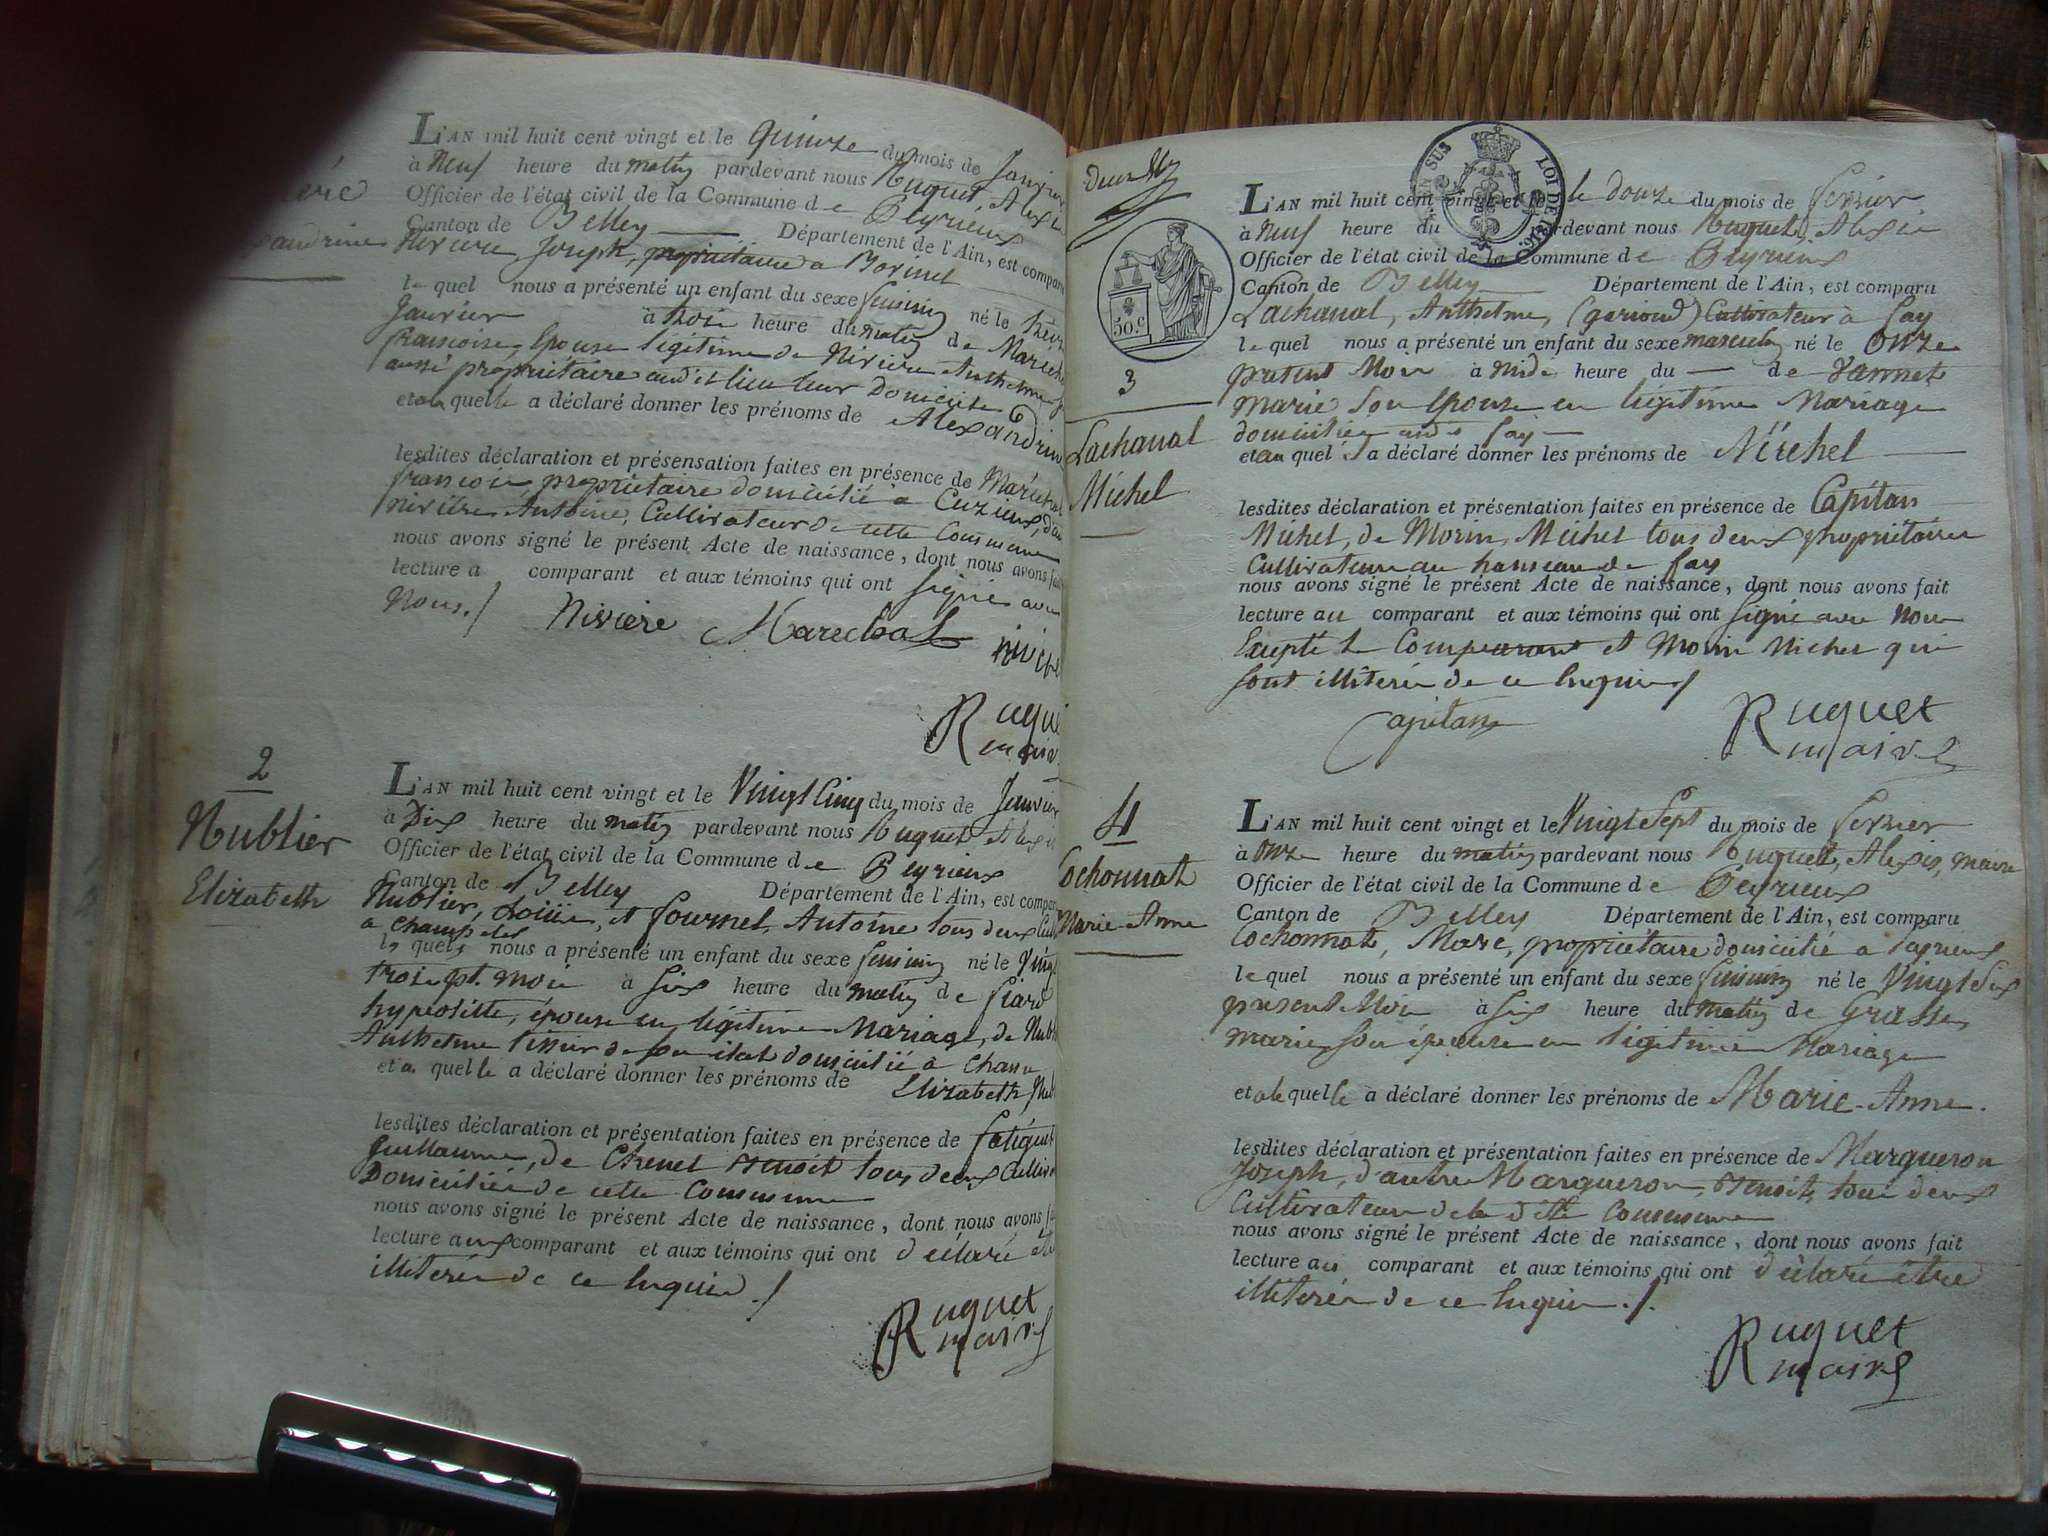 L'AN mil huit cent vingt et le quinze du mois de Janvier
à neuf heure du matin pardevant nous Ruquet, Alexis
Officier de l'état civil de la Commune de Peyrieux
Canton de Belley Département de l'Ain, est comparu
Nivière Joseph, propriétaire a
le quel nous a présenté un enfant du sexe feminin né le
Janvier à trois heure du matin de Marechal
françoise, Epouse légitime de Nivière Anthelme
aussi propriétaire audit lieu leur Domicile
et a la quelle a déclaré donner les prénoms de Alexandrine
lesdites déclaration et présensation faites en présence de Maréchal
françois propriétaire domicilié a Cuzieux, d'au
nivière Antoine, Cultivateur de cette Commune
nous avons signé le présent Acte de naissance, dont nous avons fait
lecture a comparant et aux témoins qui ont signé avec
Nous./
Nivière Marechal
Ruquet
maire
2
Nublier
Elizabeth
L'AN mil huit cent vingt et le Vingt Cinq du mois de Janvier
à Dix heure du matin pardevant nous Ruquet Alexis
Officier de l'état civil de la Commune de Peyrieux
Canton de Belley Département de l'Ain, est comparu
Nublier, et fournel, Antoine tous deux
a champtel
les quels nous a présenté un enfant du sexe feminin né le Vingt
trois pt. mois à six heure du matin de
hypolitte, épouse en légitime Mariage, de
Anthelme tissier de son état domicilié à
et a quelle a déclaré donner les prénoms de Elizabeth
lesdites déclaration et présentation faites en présence de
Guillaume, de Chenel Benoit tous deux
Domiciliés de cette Commune
nous avons signé le présent Acte de naissance, dont nous avons
lecture aux comparant et aux témoins qui ont déclaré
illiterés de ce Enquis ./
Ruquet
maire
SUS LOI DE
50.c
3
Lachanal
Michel
L'AN mil huit cent vingt et le le douze du mois de fevrier
à neuf heure du pardevant nous Ruquet, Alexis
Officier de l'état civil de la Commune de Peyrieux
Canton de Belley Département de l'Ain, est comparu
Lachanal, Anthelme, Cultivateur a fay
le quel nous a présenté un enfant du sexe masculin né le Onze
present Mois à midi heure du — de Vannet
marie son Epouse en légitime Mariage
domiciliée fay
et au quel a déclaré donner les prénoms de Michel
lesdites déclaration et présentation faites en présence de Capitan
Michel, de Morin, Michel tous deux propriétaires
Cultivateurs au hameau de fay
nous avons signé le présent Acte de naissance, dont nous avons fait
lecture au comparant et aux témoins qui ont signé avec Nous
Excepté le Comparant et Morin Michel qui
sont illiterés de ce Enquis/
Capitan
Ruquet
maire
4
Cochonnat
Marie-Anne
L'AN mil huit cent vingt et le Vingt Sept du mois de fevrier
à onze heure du matin pardevant nous Ruquet, Alexis, maire
Officier de l'état civil de la Commune de Peyrieux
Canton de Belley Département de l'Ain, est comparu
Cochonnat, Marc, propriétaire domicilié a
le quel nous a présenté un enfant du sexe feminin né le Vingt Six
present Mois à six heure du matin de Grasse,
marie, son épouse en légitime Mariage
et a la quelle a déclaré donner les prénoms de Marie-Anne.
lesdites déclaration et présentation faites en présence de Margueron
Joseph, d'autre Margueron, Benoit, tous deux
Cultivateurs de la dite Commune
nous avons signé le présent Acte de naissance, dont nous avons fait
lecture au comparant et aux témoins qui ont déclaré être
illiterés de ce Enquis ./.
Ruquet
maire